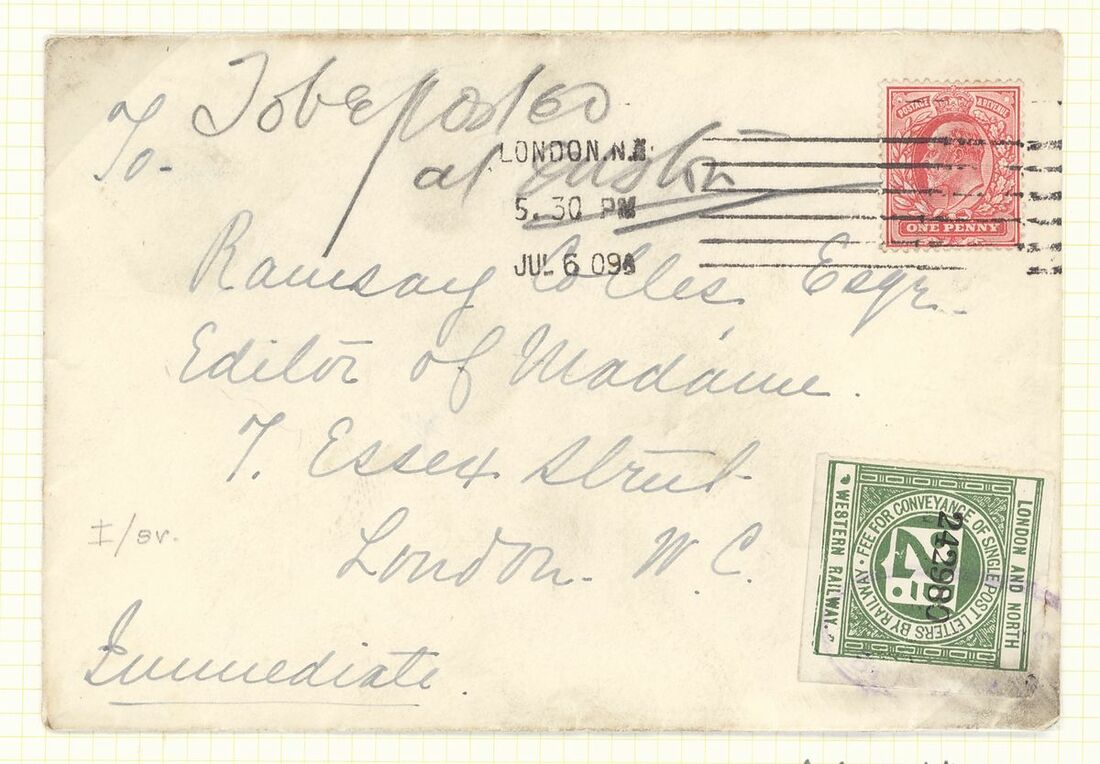 To be posted
at Euston
To-
LONDON.N.
5.30 PM
JUL 6 09
POSTAGE & REVENUE
ONE PENNY
Ramsay Colles Esqr.
Editor of Madame.
7. Essex Street
London. W.C.
I/sr.
Immediate.
LONDON AND NORTH
WESTERN RAILWAY.
FEE FOR CONVEYANCE OF SINGLE POST LETTERS BY RAILWAY
2D.
242980